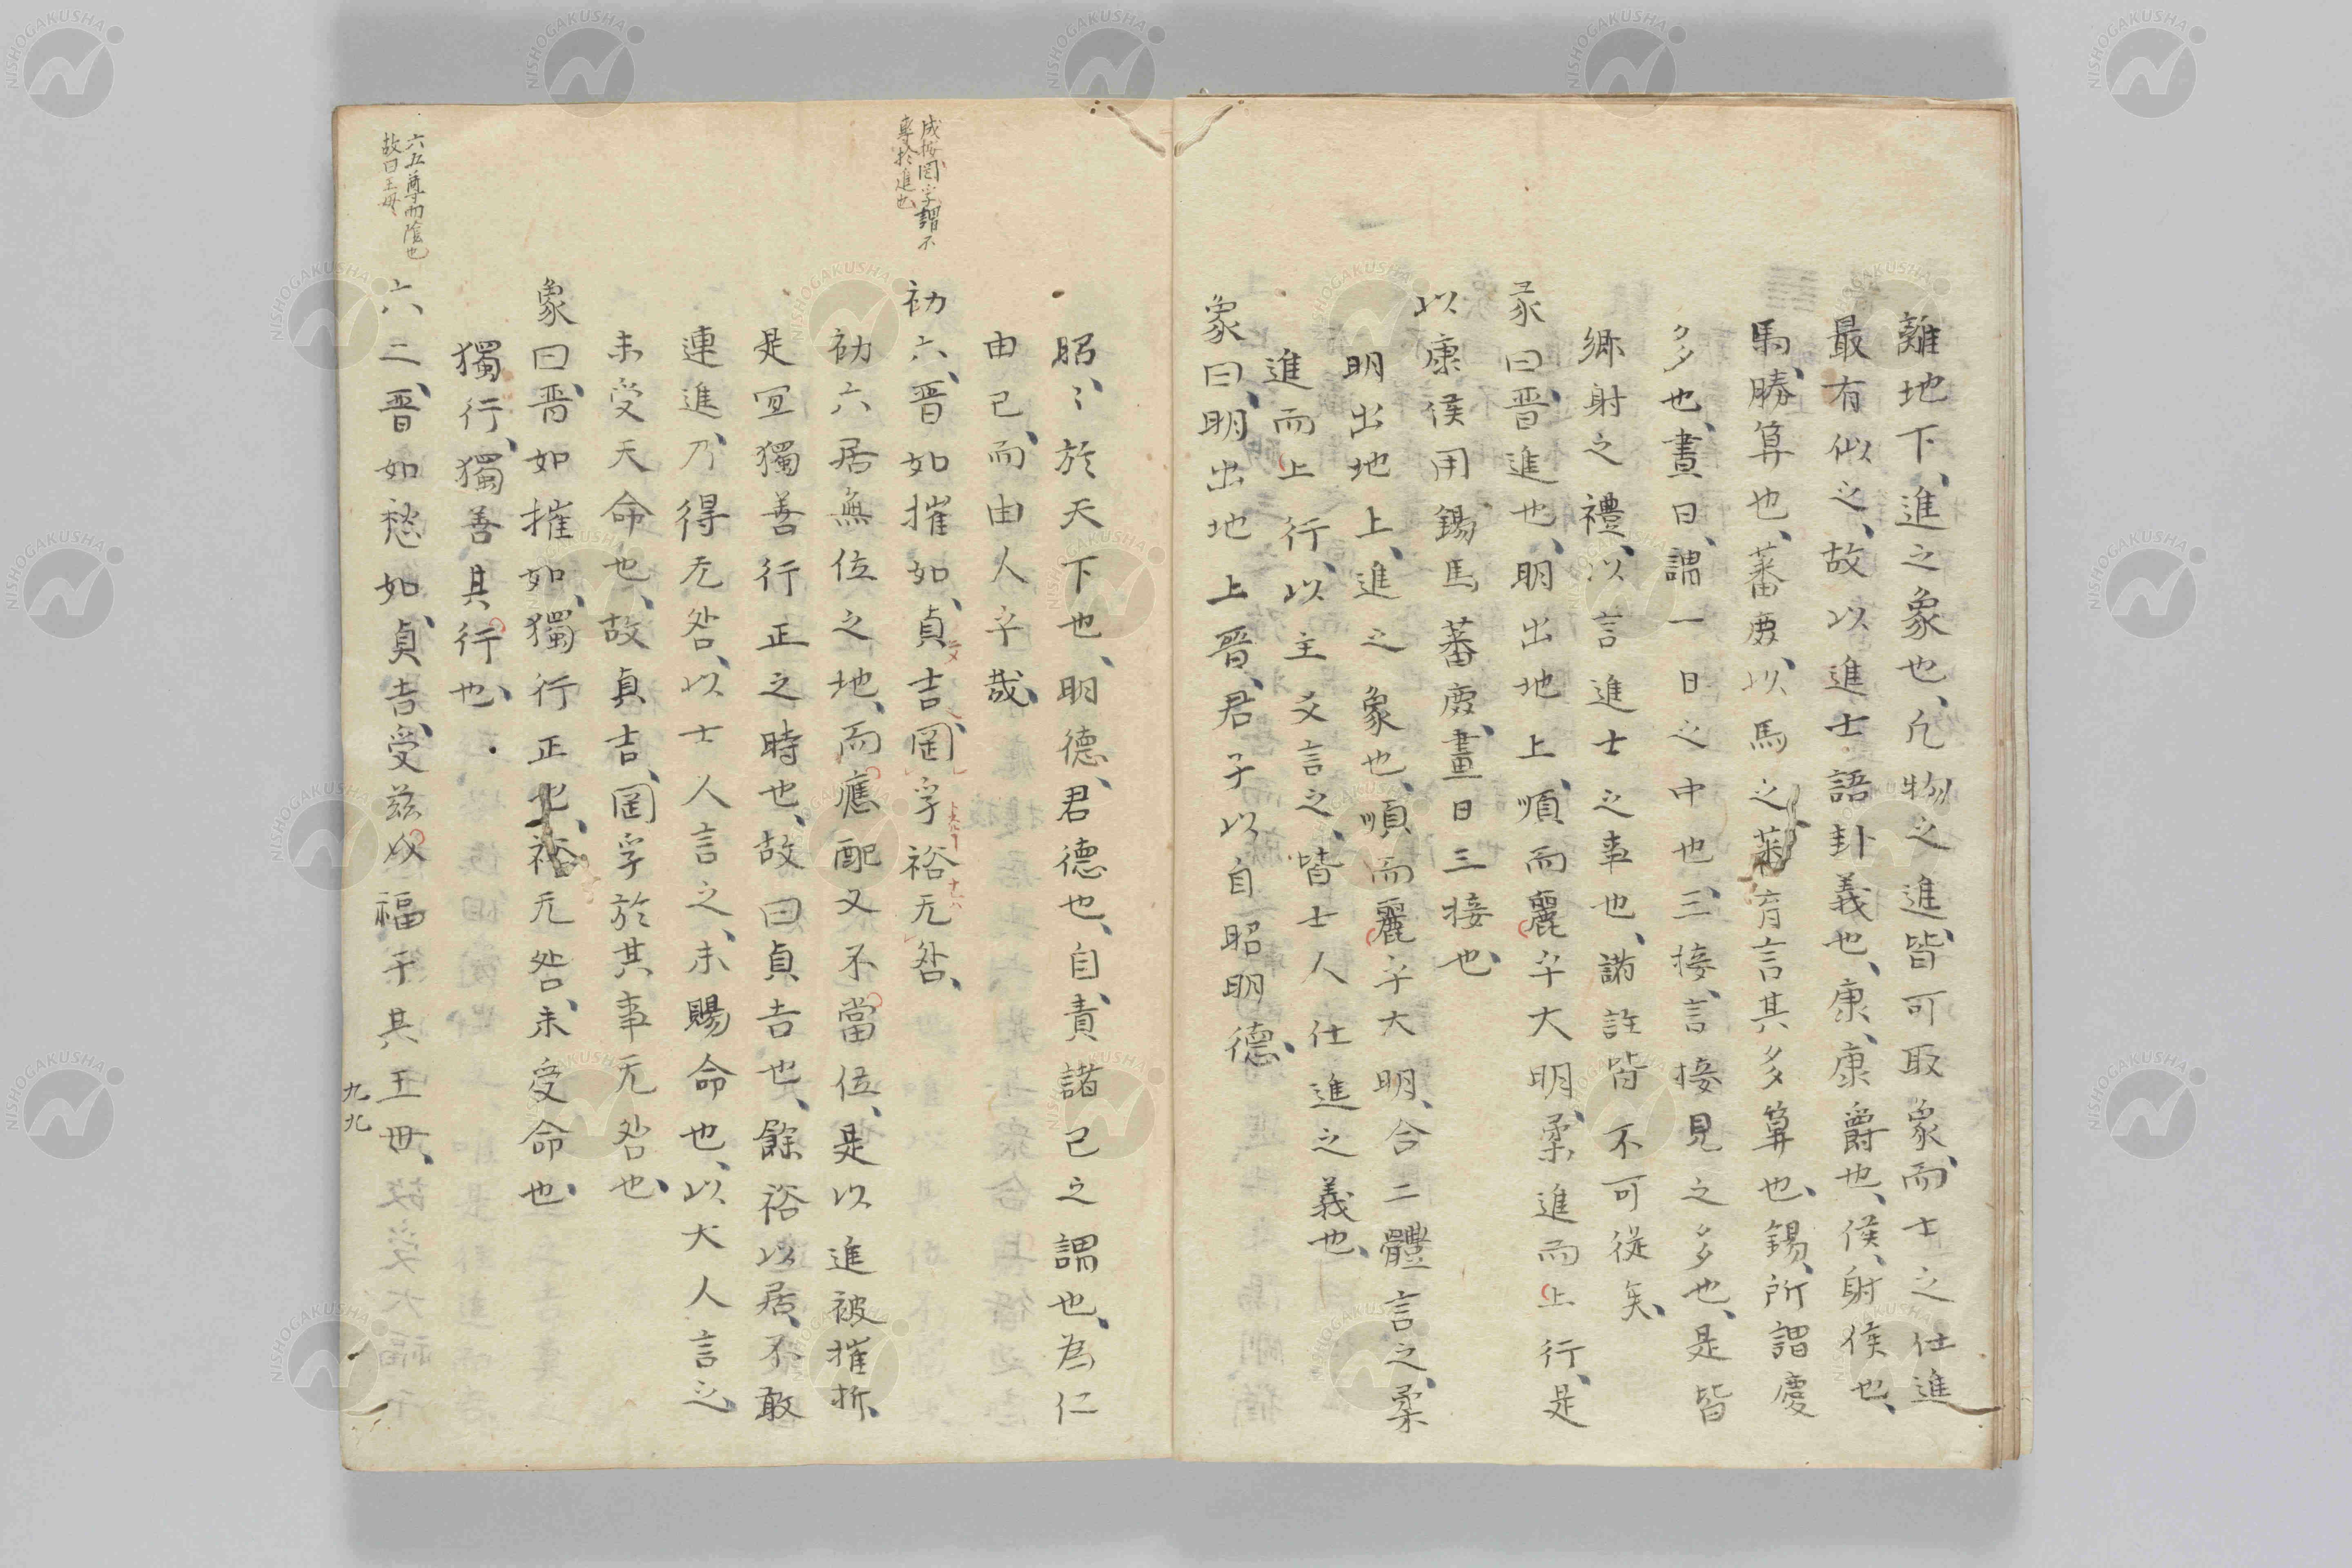 離地下、進之象也、凡物之進、皆可取象、而士之仕進
最有似之、故以進士語卦義也、康、康爵也、侯、射侯也、
馬、勝算也、蕃庶、以馬之蕃育言其多算也、錫、所謂慶
多也、晝日、謂一日之中也、三接、言接見之多也、是皆
鄉射之禮、以言進士之事也、諸註皆不可從矣、
彖曰晋、進也、明出地上、順而麗乎大明、柔進而上行、是
以康侯用錫馬蕃庶、晝日三接也、
明出地上、進之象也、順而麗乎大明、合二體言之、柔
進而上行、以主爻言之、皆士人仕進之義也、
象曰、明出地上晋、君子以自昭明德、
昭〻於天下也、明德、君德也、自責諸己之謂也、為仁
由己、而由人乎哉、
初六、晋如摧如、貞吉、罔孚裕无咎、
初六居無位之地、而應配又不當位、是以進被摧折、
是宜獨善行正之時也、故曰貞吉也、餘裕以居、不敢
連進、乃得无咎、以士人言之、未賜命也、以大人言之、
未受天命也、故貞吉、罔孚於其事无咎也、
象曰、晋如摧如、獨行正也、裕无咎、未受命也、
獨行、獨善其行也、
六二、晋如愁如、貞吉、受茲介福于其王母、
成按罔字謂不
專於進也
六五尊而陰也
故曰王母
九九
NISHOGAKUSHA